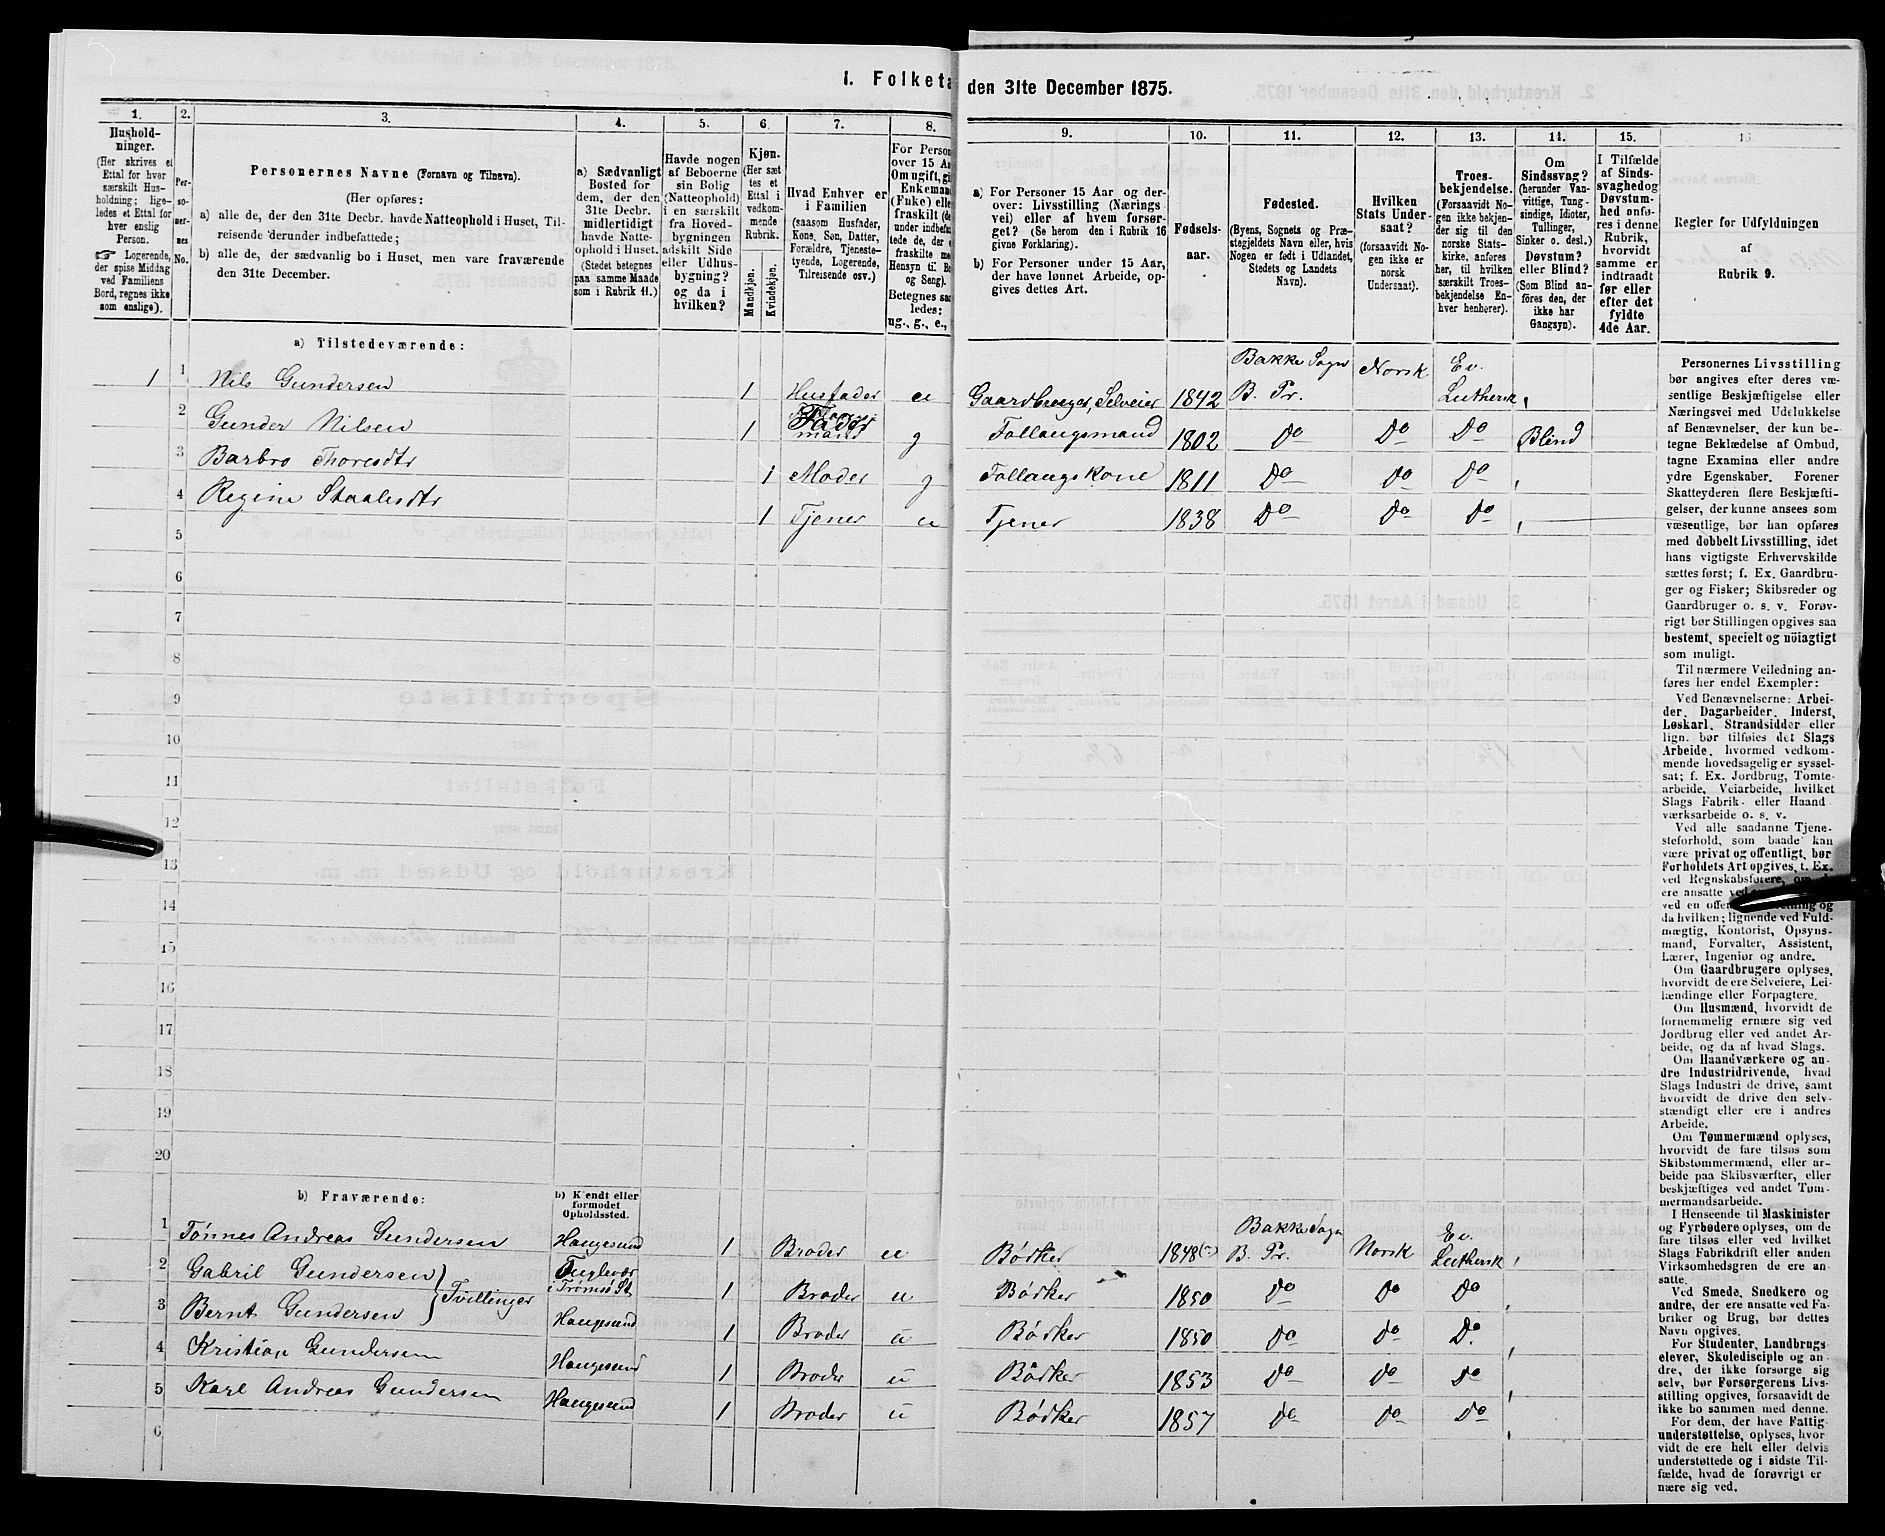 I. Folketa
den 31te December 1875.
1.
Hushold-
ninger.
(Her skrives et
Ettal for hver
særskilt Hus-
holdning; lige-
ledes et Ettal for
hver enslig
Person.
☞ Logerende,
der spise Middag
ved Familiens
Bord, regnes ikke
som enslige).
2.
Per-
so-
ner-
nes
No.
3.
Personernes Navne (Fornavn og Tilnavn).
(Her opføres:
a) alle de, der den 31te Decbr. havde Natteophold i Huset, Til-
reisende derunder indbefattede;
b) alle de, der sædvanlig bo i Huset, men vare fraværende
den 31te December.
4.
a) Sædvanligt
Bosted for
dem, der den
31te Decbr.
midlertidigt
havde Natte-
ophold i Huset.
(Stedet betegnes
paa samme Maade
som i Rubrik 11.)
5.
Havde nogen
af Beboerne
sin Bolig
(Natteophold)
i en særskilt
fra Hoved-
bygningen
adskilt Side
eller Udhus-
bygning?
og da i
hvilken?
6.
Kjøn.
(Her sæt
tes et
Ettal i
vedkom-
mende
Rubrik.
Mandkjøn.
Kvindekjøn.
7.
Hvad Enhver er
i Familien
(saasom Husfader,
Kone, Søn, Datter,
Forældre, Tjeneste-
tyende, Logerende,
Tilreisende osv.)
8.
For Person
over 15 Aa
Om ugift, gi
Enkemand
(Enke) elle
fraskilt (de
under indbefa
tede de, der e
fraskilte me
Hensyn til Bo
og Seng).
Betegnes saa
ledes:
ug., g., e.,
9.
a) For Personer 15 Aar og der-
over: Livsstilling (Nærings
vei) eller af hvem forsør-
get? (Se herom den i Rubrik 16
givne Forklaring).
b) For Personer under 15 Aar,
der have lønnet Arbeide, op-
gives dettes Art.
10.
Fødsels-
aar.
11.
Fødested.
(Byens, Sognets og Præ-
stegjeldets Navn eller, hvis
Nogen er født i Udlandet,
Stedets og Landets
Navn).
12.
Hvilken
Stats Under-
saat?
(forsaavidt No-
gen ikke er
norsk
Undersaat).
13.
Troes-
bekjendelse.
(Forsaavidt No-
gen ikke bekjen-
der sig til den
norske Stats-
kirke, anføres
her, til hvilken
særskilt Troes-
bekjendelse En-
hver henhører).
14.
Om
Sindssvag?
(herunder Van-
vittige, Tung-
sindige, Idioter,
Tullinger,
Sinker o. desl.)
Døvstum?
eller Blind?
(Som Blind an-
føres den, der
ikke har
Gangsyn).
15.
I Tilfælde
af Sinds-
svaghed og
Døvstum-
hed anfø-
res i denne
Rubrik,
hvorvidt
samme er
indtraadt
før eller
efter det
fyldte
4de Aar.
16.
Regler før Udfyldningen
af
Rubrik 9.
a) Tilstedeværende:
1 1 Nils Gundersen 1 Husfader u Gaardbruger, Selveier 1842 Bakke Sogn B. Pr. Norsk Ev. Luthersk
2 Gunder Nilsen 1 Fader g Follaugsmand 1802 Do Do Do Blind
3 Barbro Thoresdtr 1 Moder g Follaugskone 1811 Do Do Do
4 Regine Staalesdtr 1 Tjener u Tjener 1838 Do Do Do
5
6
7
8
9
10
11
12
13
14
15
16
17
18
19
20
b) Fraværende:
b) Kjendt eller
formodet
Opholdssted.
1 Tønnes Andreas Gundersen Haugesund 1 Broder u Bødker 1848 Bakke Sogn B. Pr. Norsk Ev. Luthersk
2 Gabril Gundersen } Tvillinger Fuglevær i Tromsø St 1 Broder u Bødker 1850 Do Do Do
3 Bernt Gundersen Haugesund 1 Broder u Bødker 1850 Do Do Do
4 Kristian Gundersen Haugesund 1 Broder u Bødker 1853 Do Do Do
5 Karl Andreas Gundersen Haugesund 1 Broder u Bødker 1857 Do Do Do
6
Personernes Livsstilling
bør angives efter deres væ-
sentlige Beskjæftigelse eller
Næringsvei med Udelukkelse
af Benævnelser, der kun be-
tegne Beklædelse af Ombud,
tagne Examina eller andre
ydre Egenskaber. Forener
Skatteyderen flere Beskjæfti-
gelser, der kunne ansees som
væsentlige, bør han opføres
med dobbelt Livsstilling, idet
hans vigtigste Erhvervskilde
sættes først; f. Ex. Gaardbru-
ger og Fisker; Skibsreder og
Gaardbruger o. s. v. Forøv-
rigt bør Stillingen opgives saa
bestemt, specielt og nöiagtigt
som muligt.
Til nærmere Veiledning an-
føres her endel Exempler:
Ved Benævnelserne: Arbei-
der, Dagarbeider, Inderst,
Løskarl, Strandsidder eller
lign. bør tilføies det Slags
Arbeide, hvormed vedkom-
mende hovedsagelig er syssel-
sat; f. Ex. Jordbrug, Tomte-
arbeide, Veiarbeide, hvilket
Slags Fabrik- eller Haand
værksarbeide o. s. v.
Ved alle saadanne Tjene-
steforhold, som baade kan
være privat og offentligt, bør
Forholdets Art opgives, t. Ex.
ved Regnskabsførere,
ere ansatte
ved en
da hvilken; lignende ved Fuld-
mægtig, Kontorist, Opsyns-
mand, Forvalter, Assistent,
Lærer, Ingeniør og andre.
Om Gaardbrugere oplyses,
hvorvidt de ere Selveiere, Lei-
lændinge eller Forpagtere.
Om Husmænd, hvorvidt de
fornemmelig ernære sig ved
Jordbrug eller ved andet Ar-
beide, og da af hvad Slags.
Om Haandværkere og an-
dre Industridrivende, hvad
Slags Industri de drive, samt
hvorvidt de drive den selv-
stændigt eller ere i andres
Arbeide.
Om Tømmermænd oplyses,
hvorvidt de fare tilsøs som
Skibstømmermænd, eller ar-
beide paa Skibsværfter, eller
beskjæftiges ved andet Tøm-
mermandsarbeide.
I Henseende til Maskinister
og Fyrbødere oplyses, om de
fare tilsøs eller ved hvilket
Slags Fabrikdrift eller anden
Virksomhedsgren de ere an-
satte.
Ved Smede, Snedkere og
andre, der ere ansatte ved Fa-
briker og Brug, bør dettes
Navn opgives.
For Studenter, Landbrugs-
elever, Skoledisciple og an-
dre, der ikke forsørge sig
selv, bør Forsørgerens Livs-
stilling opgives, forsaavidt de
ikke bo sammen med denne.
For dem, der have Fattig-
understøttelse, oplyses, hvor-
vidt de ere helt eller delvis
understøttede og i sidste Til-
fælde, hvad de forøvrigt er
nære sig ved.